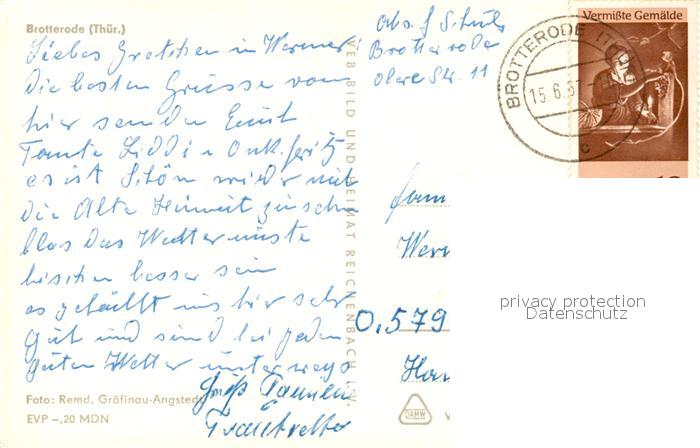 Brotterode (Thür.)
Liebes Gretchen in Werner
Die besten Grüsse vom
hier senden Euch
Tante Liddi u Onk. Fritz
es ist Schön wieder mal
die Alte Heimat zu sehn
blos das Wetter müste
bischen besser sein
es gefällt uns hier sehr
gut und sind bei jeden
guten Wetter unterwegs
Foto: Remd, Gräfinau-Angstedt
EVP –,20 MDN
VEB BILD UND HEIMAT REICHENBACH I.V.
Abs. f Schulz
Brotterode
obere Str. 11
BROTTERODE (THÜR)
15.6.67
c
Vermißte Gemälde
10
Fam
Wern
0.579
Han
DAMW
V
privacy protection
Datenschutz